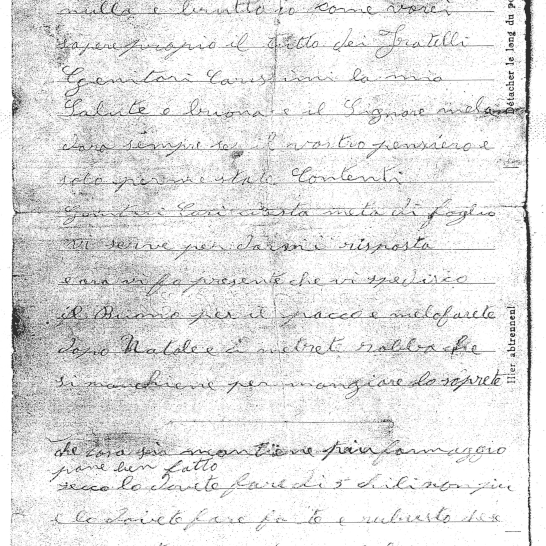 nulla e brutto io come vorei
sapere propio il tutto dei Fratelli
Genitori Carissimi la mia
Salute e buona e il Signore mela
dara sempre so il vostro pensiero e
solo per me state Contenti
Genitori Cari questa meta di foglio
vi serve per darmi risposta
e ora vi fo presente che vi spedisco
il Buono per il pacco e melofarete
dopo Natale e ci metrete robba che
si manchiene per mangiare lo saprete
che cosa sia mantiene pain formaggio
pane ben fatto
secco lo dovete fare di 5 chili non piu
e lo dovete fare fa te e rubusto
Détacher le long du po
Hier abtrennen!